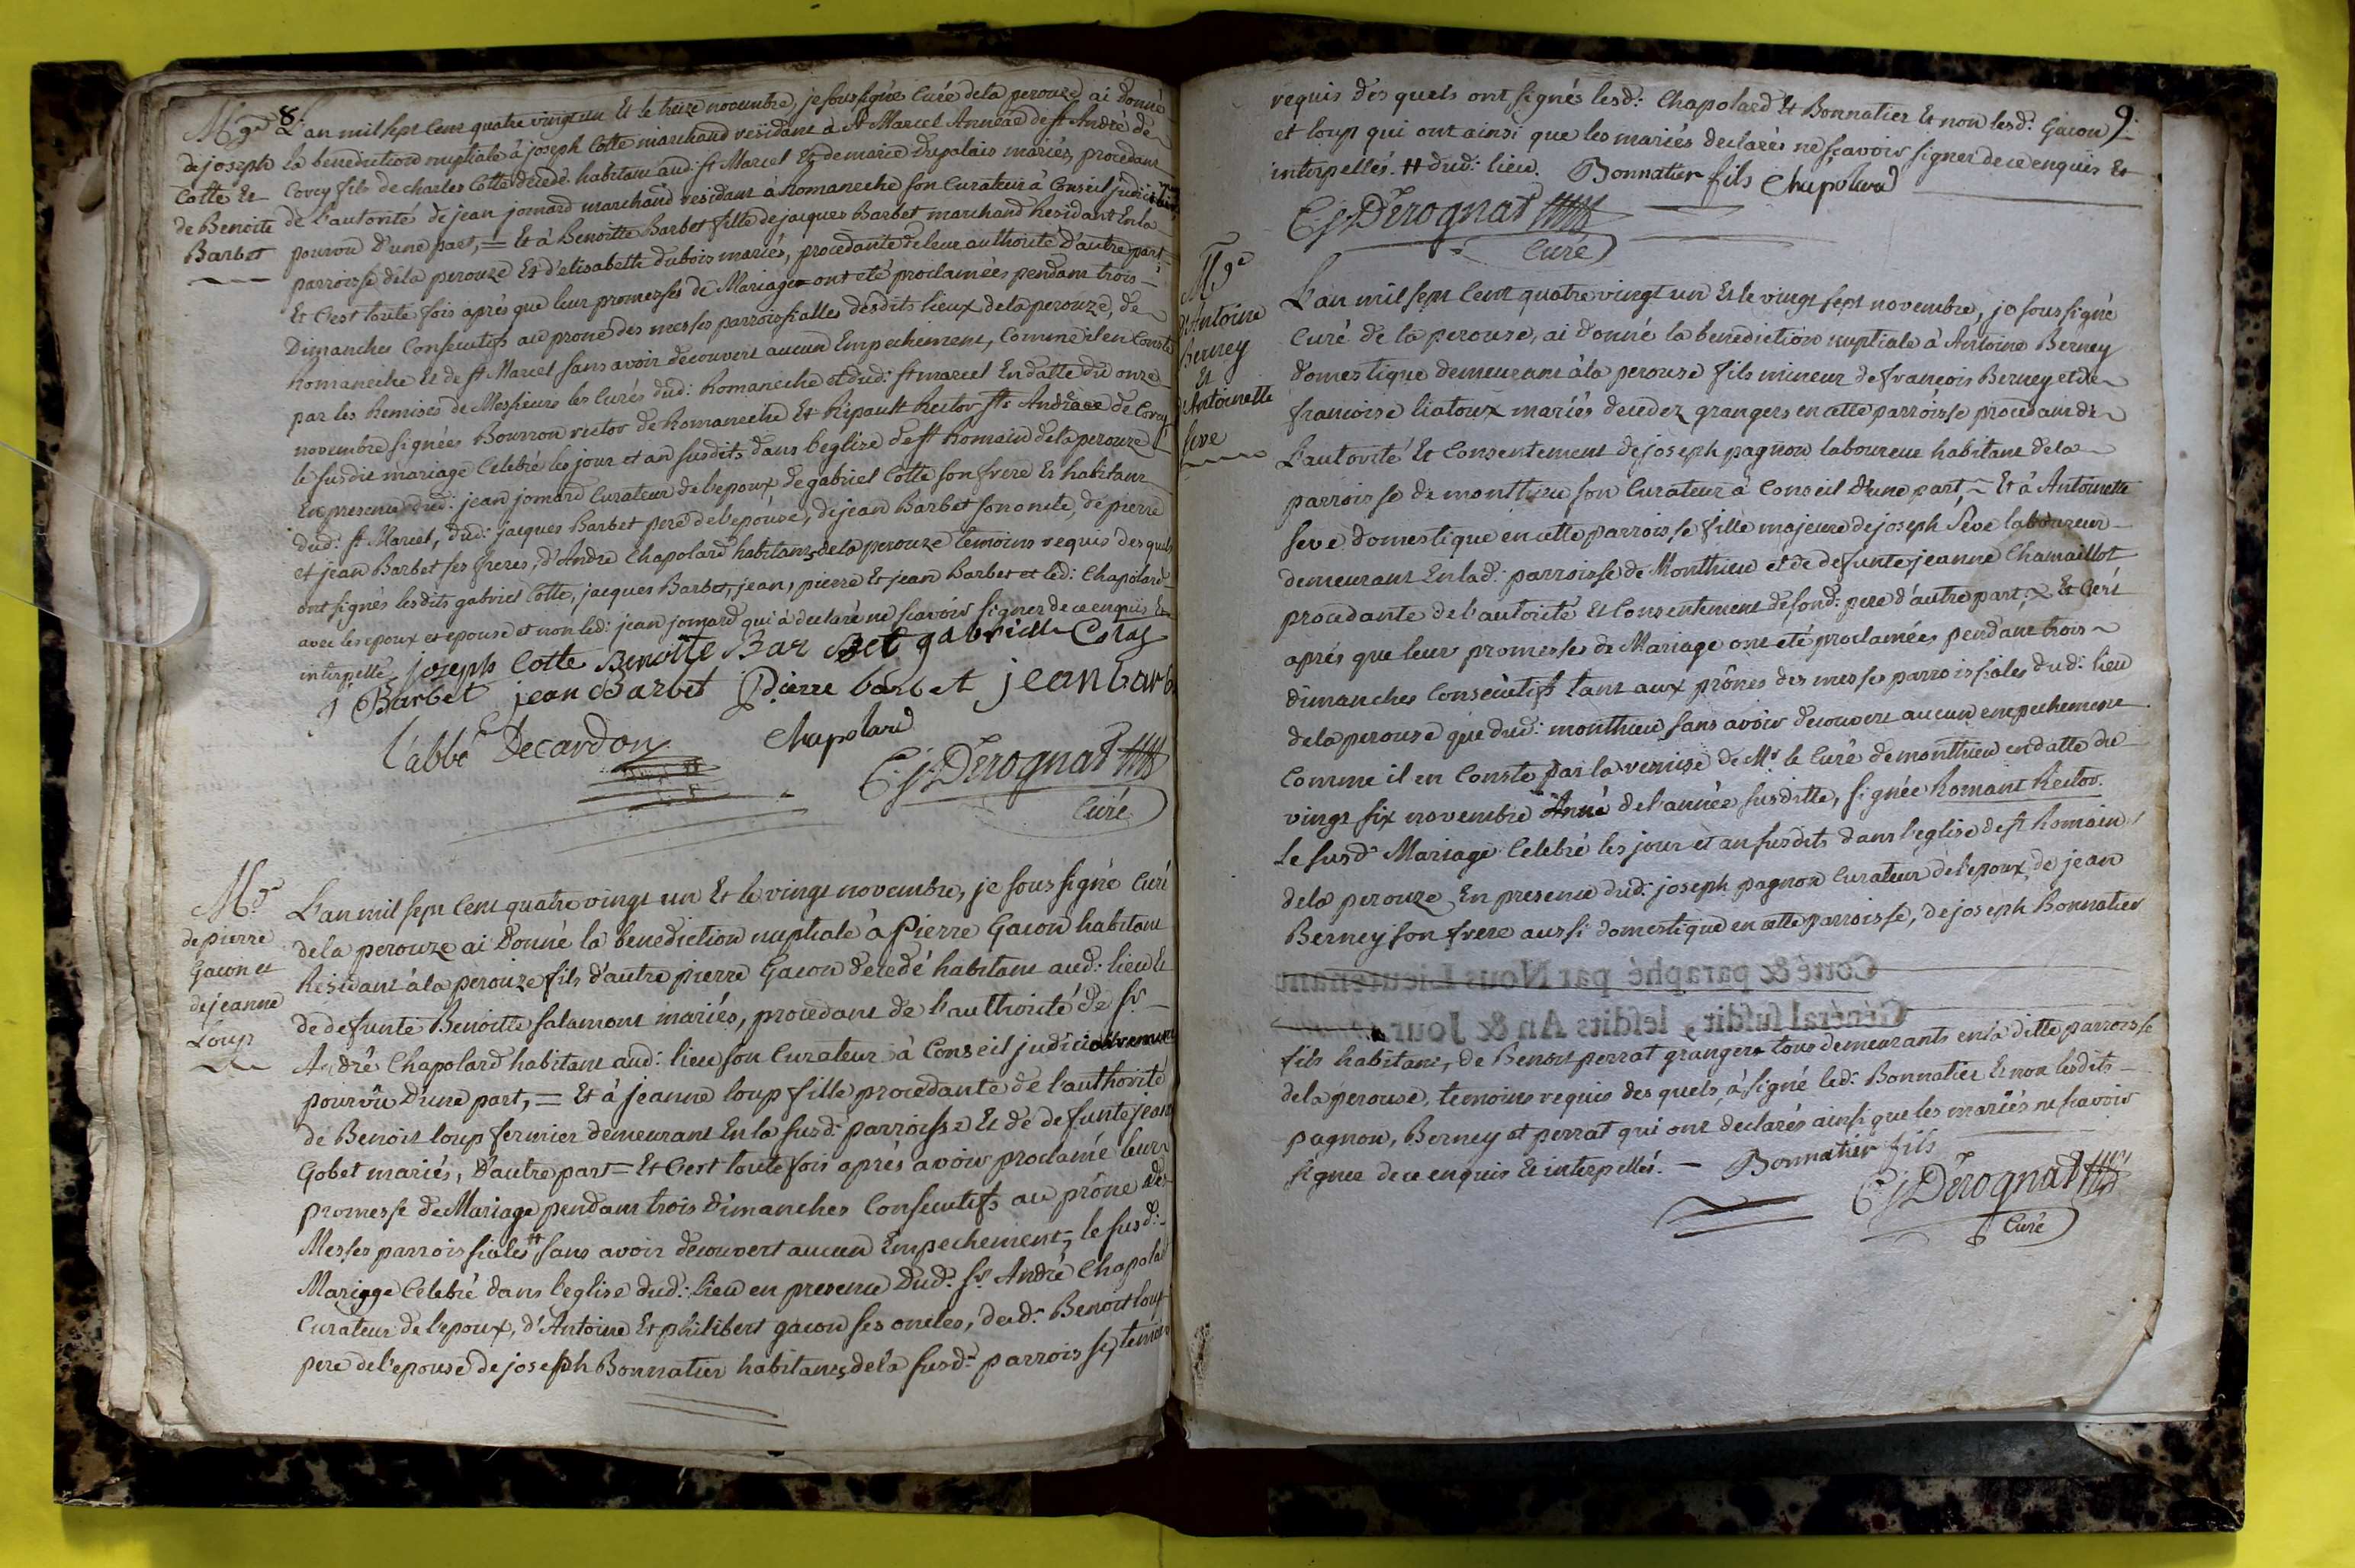 8.
Mge
de joseph
Cotte Et
de Benoite
Barbet
L'an mil sept cent quatre vingt un Et le treize novembre, je soussigné Curé dela perouze, ai donné
la benediction nuptiale à joseph Cotte marchand residant à St Marcel Annéxe de st André de
Corcy fils de charles Cotte décédé habitant aud: st Marcel Et de marie Dupalais mariés, procedant
de l'autorité de jean jomard marchand residant à Romaneche son Curateur à Conseil judiciairement
pourvu d'une part, = Et à Benoitte Barbet fille de jacques Barbet marchand Residant En la
parroisse dela perouze Et d'elisabeth dubois mariés, procedante de leur authorité d'autre part,
Et C'est toute fois après que leur promesses de Mariage ont eté proclamées pendant trois
Dimanches Consecutifs au prone des messes parroissialles desdits lieux dela perouze, de
Romaneche Et de st Marcel sans avoir decouvert aucun Empechement, Comme il en Conste
par les Remises de Messieurs les Curés dud: Romaneche et dud: st marcel En datte du onze
novembre signées Bourron rector de Romaneche Et Ripault Rector St Andréae de Corcy
le susdit mariage Celebré les jour et an susdits dans l'eglise de st Romain dela perouze
En presence dud: jean jomard Curateur de l'epoux de gabriel Cotte son frere Et habitant
dud: st Marcel, dud: jacques Barbet pere de l'epouse, de jean Barbet son oncle, de pierre
et jean Barbet ses freres, d'André Chapolard habitants dela perouze temoins requis des quels
ont signés lesdits gabriel Cotte, jacques Barbet, jean, pierre Et jean Barbet et led: Chapolard
avec les epoux et epouse et non led: jean jomard qui à declaré ne scavoir signer de ce enquis Et
interpellé. joseph Cotte Benoitte Bar Bet gabriell Cotte
J Barbet jean Barbet Pierre barbet jean barb
l'abbé Decardon Chapolard
C: j: Derognat
Curé
Mge
de pierre
Gacon et
de jeanne
Loup
L'an mil sept Cent quatre vingt un Et le vingt novembre, je sous signé Curé
dela perouze ai donné la benediction nuptiale à Pierre Gacon habitant
Residant à la perouze fils d'autre pierre Gacon decedé habitant aud: lieu Et
de defunte Benoitte salamont mariés, procedant de l'authorité de sr
André Chapolard habitant aud: lieu son Curateur à Conseil judiciairement
pourvû D'une part, = Et à jeanne loup fille procedante de l'authorité
de Benoit loup fermier demeurant En la susd: parroisse Et de defunte jeanne
Gobet mariés, D'autre part = Et C'est toute fois après avoir proclamé leur
promesse de Mariage pendant trois Dimanches Consecutifs au prône des
Messes parroissiales # sans avoir decouvert aucun Empechement, le susd:
Mariage Celebré dans l'eglise dud: lieu en presence Dud: sr André Chapolard
Curateur de l'epoux, d'Antoine Et philibert gacon ses oncles, dud: Benoit loup
pere de l'epouse de joseph Bonnatier habitants dela susd: parroisse, temoins
9.
requis des quels ont signés lesd: Chapolard Et Bonnatier Et non lesd: Gacon
et loup qui ont ainsi que les mariés declarés ne scavoir signer de ce enquis Et
interpellés. # dud: lieu. Bonnatier fils Chapolard
C: j: Derognat
Curé
Mge
d'Antoine
Berney
Et
d'Antoinette
Seve
L'an mil sept Cent quatre vingt un Et le vingt sept novembre, je sous signé
Curé de la perouse, ai donné la benediction nuptiale à Antoine Berney
domestique demeurant à la perouse fils mineur de francois Berney et de
francoise liatoux mariés decedez grangers en cette parroisse procedant de
L'autorité Et Consentement de joseph pagnon laboureur habitant dela
parroisse de monthieu son Curateur à Conseil D'une part, = Et à Antoinette
Seve domestique en cette parroisse fille majeure de joseph Seve laboureur
demeurant En lad: parroisse de Monthieu et de defunte jeanne Chamaillot
procedante de l'autorité Et Consentement de sond: pere d'autre part, = Et C'est
après que leur promesses de Mariage ont eté proclamées pendant trois
dimanches Consecutifs tant aux prônes des messes parroissiales dud: lieu
dela perouse que dud: monthieu sans avoir decouvert aucun empechement
Comme il en Conste par la remise de Mr le Curé de monthieu en datte du
vingt six novembre de l'année susditte, signée Romant Rector.
Le susd: Mariage Celebré les jour et an susdits dans l'eglise de st Romain
dela perouze En presence dud: joseph pagnon Curateur de l'epoux, de jean
Berney son frere aussi domestique en cette parroisse, de joseph Bonnatier
Cotté & paraphé par Nous Lieutenant
Général susdit, lesdits An & Jour
fils habitant, de Benoit perrat granger tous demeurants en la ditte parroisse
dela perouse, temoins requis des quels à signé led: Bonnatier Et non lesdits
pagnon, Berney et perrat qui ont declarés ainsi que les mariés ne scavoir
signer de ce enquis Et interpellés. — Bonnatier fils
C: j: Derognat
Curé